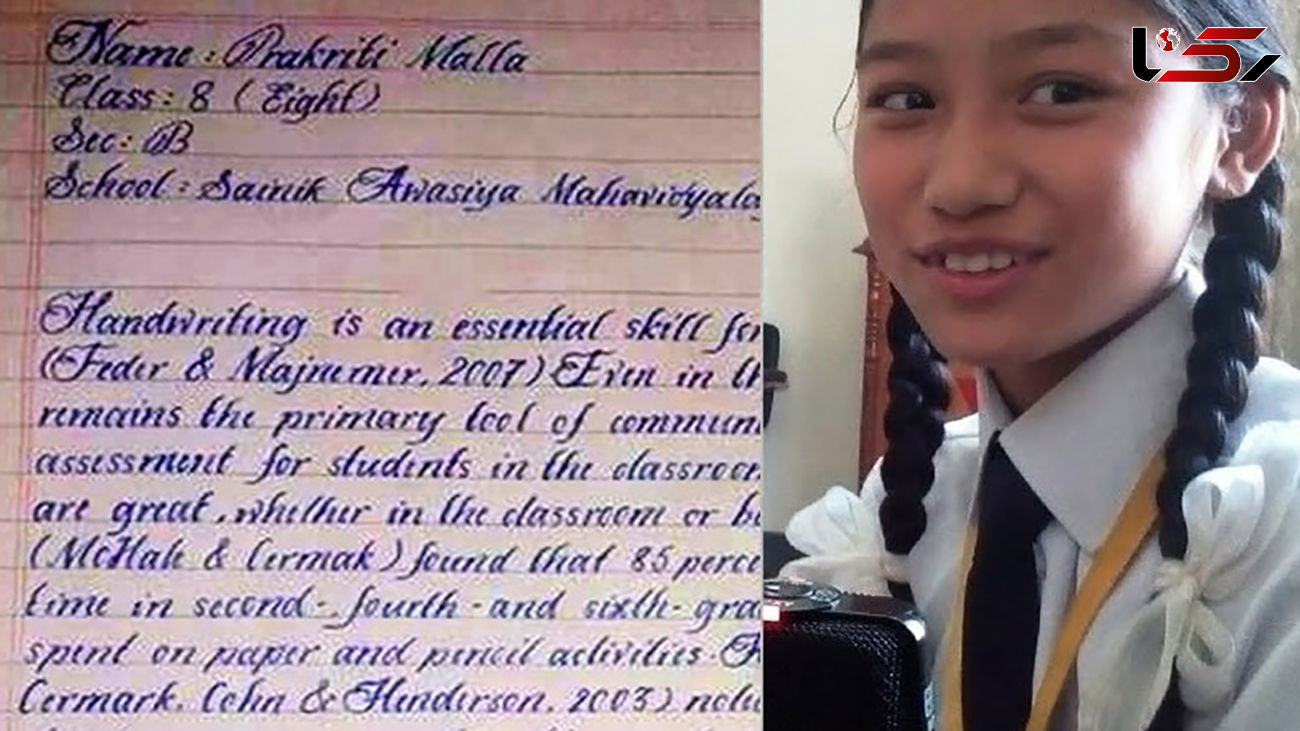 Name : Prakriti Malla
Class : 8 (Eight)
Sec : B
School : Sainik Awasiya Mahavidyala
Handwriting is an essential skill for
(Feder & Majnemer, 2007) Even in th
remains the primary tool of commun
assessment for students in the classroom
are great, whether in the classroom or be
(McHale & Cermak) found that 85 perce
time in second-, fourth - and sixth- gra
spent on paper and pencil activities.
Cermark, Cohn & Henderson, 2003) not